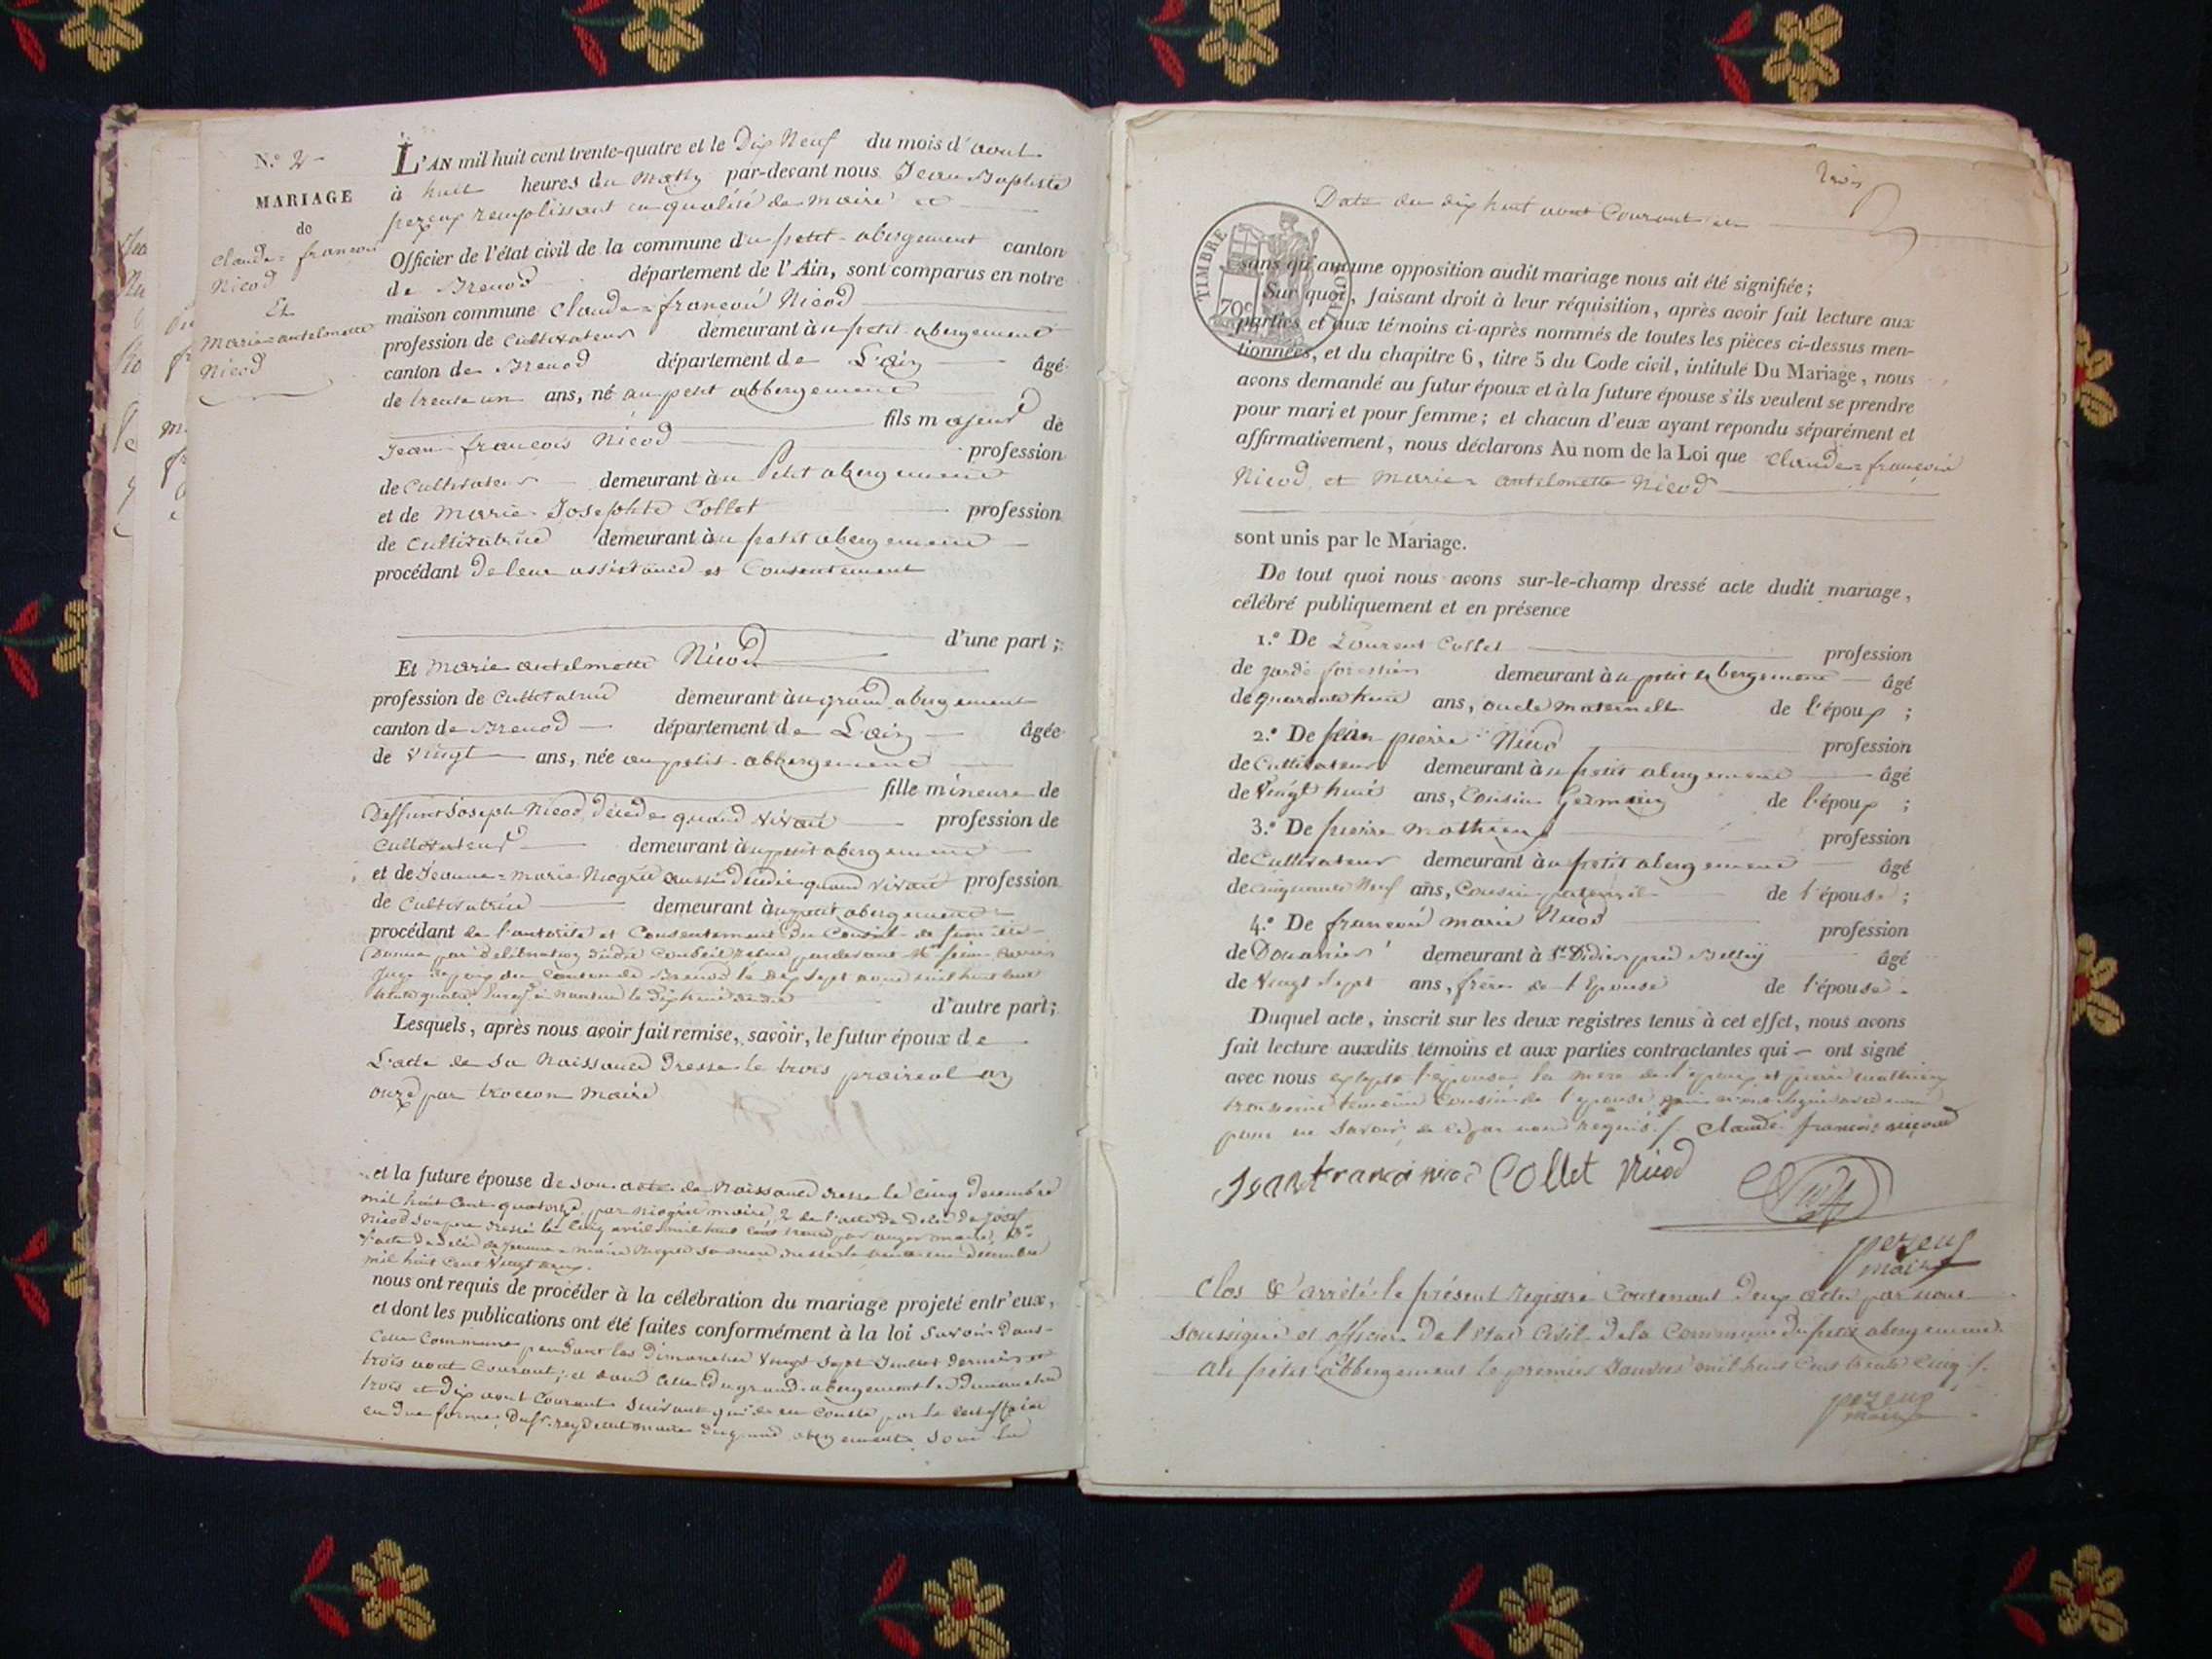 N.º 2
MARIAGE
de
Claude=françois
Nicod
Et
Marie=antelmette
Nicod
L'AN mil huit cent trente-quatre et le Dix Neuf du mois d'aout
à huit heures du Matin par-devant nous Jean Baptiste
pezeux remplissant en qualité de maire et
Officier de l'état civil de la commune du petit-abergement canton
de Brenod département de l'Ain, sont comparus en notre
maison commune Claude=françois Nicod
profession de Cultivateur demeurant à u petit-abergement
canton de Brenod département de L'ain âgé
de trente un ans, né au petit abbergement
fils majeur de
Jean-françois Nicod profession
de Cultivateur demeurant à u Petit abergement
et de Marie-Josephte Collet profession
de Cultivatrice demeurant à u petit abergement
procédant de leur assistance et Consentement
d'une part ;
Et Marie antelmette Nicod
profession de Cultivatrice demeurant à u grand abergement
canton de Brenod département de L'ain âgée
de Vingt ans, née au petit-abbergement
fille mineure de
Deffunt Joseph Nicod, décédé quand vivait profession de
Cultivateur demeurant à u petit abergement
et de Jeanne=Marie Niogret aussi décédée quand vivait profession
de Cultivatrice demeurant à u petit abergement
procédant de l'autorité et Consentement du Conseil de famille
Donnée par délibération dudit Conseil tenue pardevant Mr
juge de paix du Canton de Brenod le dix sept aout mil huit cent
trente quatre Enregé à Nantua le dix huit dudit d'autre part;
Lesquels, après nous avoir fait remise, savoir, le futur époux de
L'acte de sa Naissance Dressé le trois prairéal an
onze par trocion Maire
et la future épouse de son acte de Naissance dressé le Cinq Decembre
mil huit Cent quatorze, par Niogret maire, 2 de l'acte de Décès de Josef
Nicod son père dressé le Cinq avril mil huit Cent trente par auger maire, 3º
l'acte de décès de Jeanne=Marie Niogret sa mère dressé le Decembre
mil huit Cent Vingt
nous ont requis de procéder à la célébration du mariage projeté entr'eux,
et dont les publications ont été faites conformément à la loi Savoir dans
Cette Commune pendant les Dimanches Vingt Sept Juillet dernier et
trois aout Courant; et dans Celle du grand-abergement les Dimanches
trois et Dix aout Courant Suivant qu'il en Conste par le Certifficat
en due forme, Du Sr. reydellet maire du grand abergement Sous la
trois
Date du dix huit aout Courant et
TIMBRE ROYAL
70c
sans qu'aucune opposition audit mariage nous ait été signifiée;
Sur quoi, faisant droit à leur réquisition, après avoir fait lecture aux
parties et aux témoins ci-après nommés de toutes les pièces ci-dessus men-
tionnées, et du chapitre 6, titre 5 du Code civil, intitulé Du Mariage, nous
avons demandé au futur époux et à la future épouse s'ils veulent se prendre
pour mari et pour femme; et chacun d'eux ayant repondu séparément et
affirmativement, nous déclarons Au nom de la Loi que Claude=françois
Nicod et Marie=antelmette Nicod
sont unis par le Mariage.
De tout quoi nous avons sur-le-champ dressé acte dudit mariage,
célébré publiquement et en présence
1.º De Laurent Collet profession
de garde forestier demeurant à u petit abergement âgé
de quarante huit ans, oncle maternelle de l'époux ;
2.º De jean pierre Nicod profession
de Cultivateur demeurant à u petit abergement âgé
de Vingt huit ans, Cousin Germain de l'époux ;
3.º De pierre Mathieux profession
de Cultivateur demeurant à u petit abergement âgé
de cinquante Neuf ans, Cousin paternel de l'épouse ;
4.º De françois marie Nicod profession
de Douanier demeurant à St Didier près Belley âgé
de Vingt Sept ans, frère de l'Epouse de l'épouse.
Duquel acte, inscrit sur les deux registres tenus à cet effet, nous avons
fait lecture auxdits témoins et aux parties contractantes qui — ont signé
avec nous excepté l'épouse, la mère de l'époux et pierre mathieux
troisième temoin Cousin de l'epouse
pour ne Savoir de ce par nous requis./. Claude françois nicod
Jean francoi nicod Collet Nicod
pezeux
maire
Clos & arrêté le présent Régistre Contenant Deux actes par nous
soussigné et officier de l'Etat Civil de la Commune du petit abergement.
au petit abbergement le premier Janvier mil huit Cent trente Cinq ./.
pezeux
maire